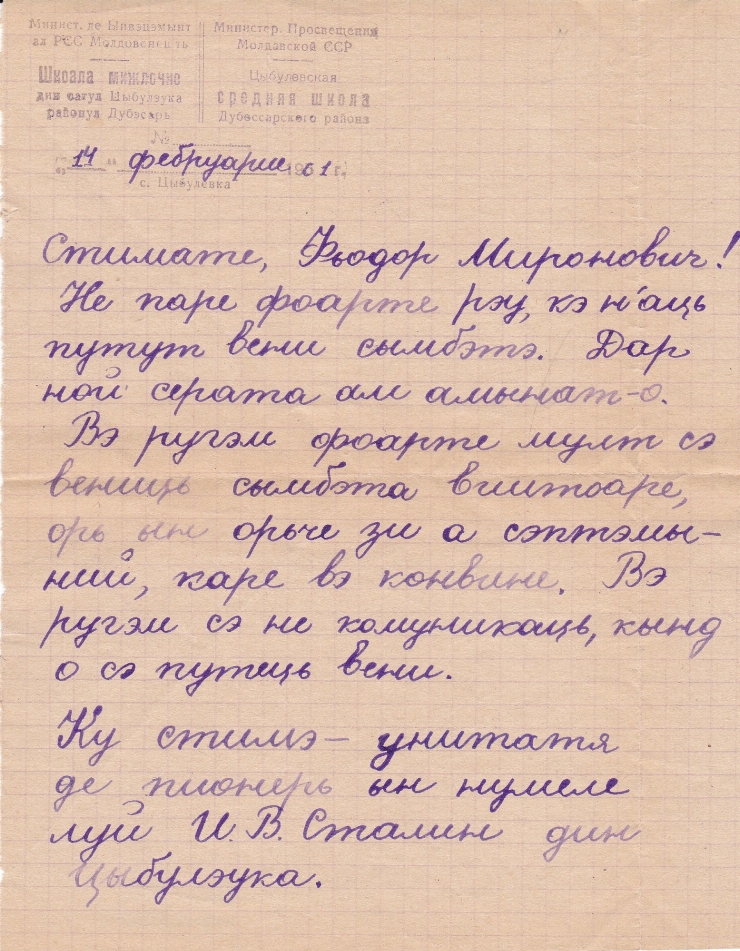 Минист. де Ынвэцэмынт
ал РСС Молдовенешть
Шкоала мижлочие
дин сатул Цыбулэука
районул Дубэсарь
Министер. Просвещения
Молдавской ССР
Цыбулевская
средняя школа
Дубоссарского района
№
"14" фебруарие 1961 г.
с. Цыбулевка
Стимате, Фьодор Миронович!
Не паре фоарте рэу, кэ н'аць
путут вени сымбэтэ. Дар
ной серата ам амынат-о.
Вэ ругэм фоарте мулт сэ
вениць сымбэта виитоаре,
орь ын орьче зи а сэптэмы-
ний, каре вэ конвине. Вэ
ругэм сэ не комуникаць, кынд
о сэ путець вени.
Ку стимэ — унитатя
де пионерь ын нумеле
луй И.В. Сталин дин
Цыбулэука.